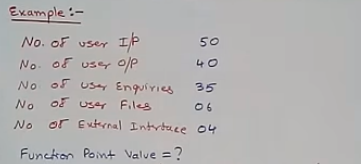 Example :-
No. of user I/P 50
No. of user O/P 40
No. of User Enquiries 35
No of User Files 06
No of External Interface 04
Function Point Value = ?